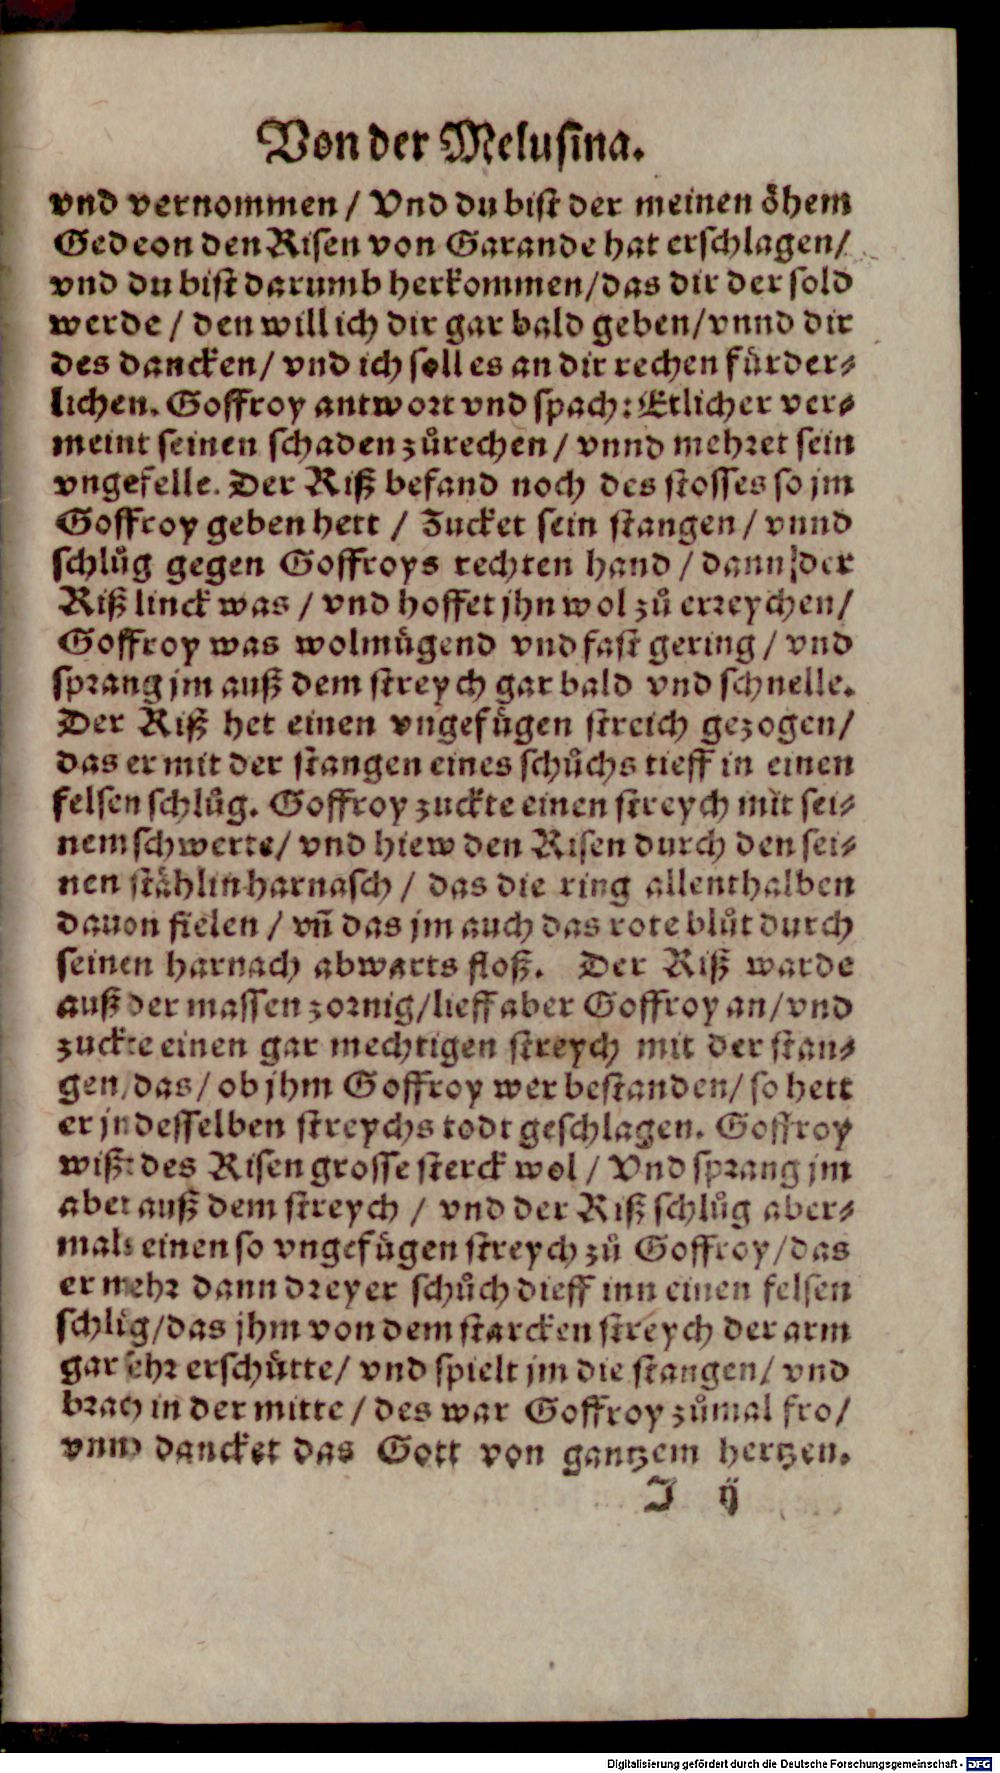 Von der Melusina.
vnd vernommen / Vnd du bist der meinen öhem
Gedeon den Risen von Garande hat erschlagen/
vnd du bist darumb herkommen/das dir der sold
werde / den will ich dir gar bald geben/vnnd dir
des dancken/ vnd ich soll es an dir rechen fürder-
lichen. Goffroy antwort vnd spach: Etlicher ver-
meint seinen schaden zůrechen / vnnd mehret sein
vngefelle. Der Riß befand noch des stosses so jm
Goffroy geben hett / Zucket sein stangen / vnnd
schlůg gegen Goffroys rechten hand / dann der
Riß linck was / vnd hoffet jhn wol zů erreychen/
Goffroy was wolmügend vnd fast gering / vnd
sprang jm auß dem streych gar bald vnd schnelle.
Der Riß het einen vngefügen streich gezogen/
das er mit der stangen eines schůchs tieff in einen
felsen schlůg. Goffroy zuckte einen streych mit sei-
nem schwerte/ vnd hiew den Risen durch den sei-
nen stählin harnasch / das die ring allenthalben
dauon fielen / vñ das jm auch das rote blůt durch
seinen harnach abwarts floß. Der Riß warde
auß der massen zornig/lieff aber Goffroy an/vnd
zuckte einen gar mechtigen streych mit der stan-
gen/das/ ob jhm Goffroy wer bestanden/ so hett
er jn desselben streychs todt geschlagen. Goffroy
wißt des Risen grosse sterck wol / Vnd sprang jm
aber auß dem streych / vnd der Riß schlůg aber-
mals einen so vngefügen streych zů Goffroy/das
er mehr dann dreyer schůch dieff inn einen felsen
schlůg/das jhm von dem starcken streych der arm
gar sehr erschütte/ vnd spielt jm die stangen/ vnd
brach in der mitte / des war Goffroy zůmal fro/
vnnd dancket das Gott von gantzem hertzen.
J ij
Digitalisierung gefördert durch die Deutsche Forschungsgemeinschaft - DFG